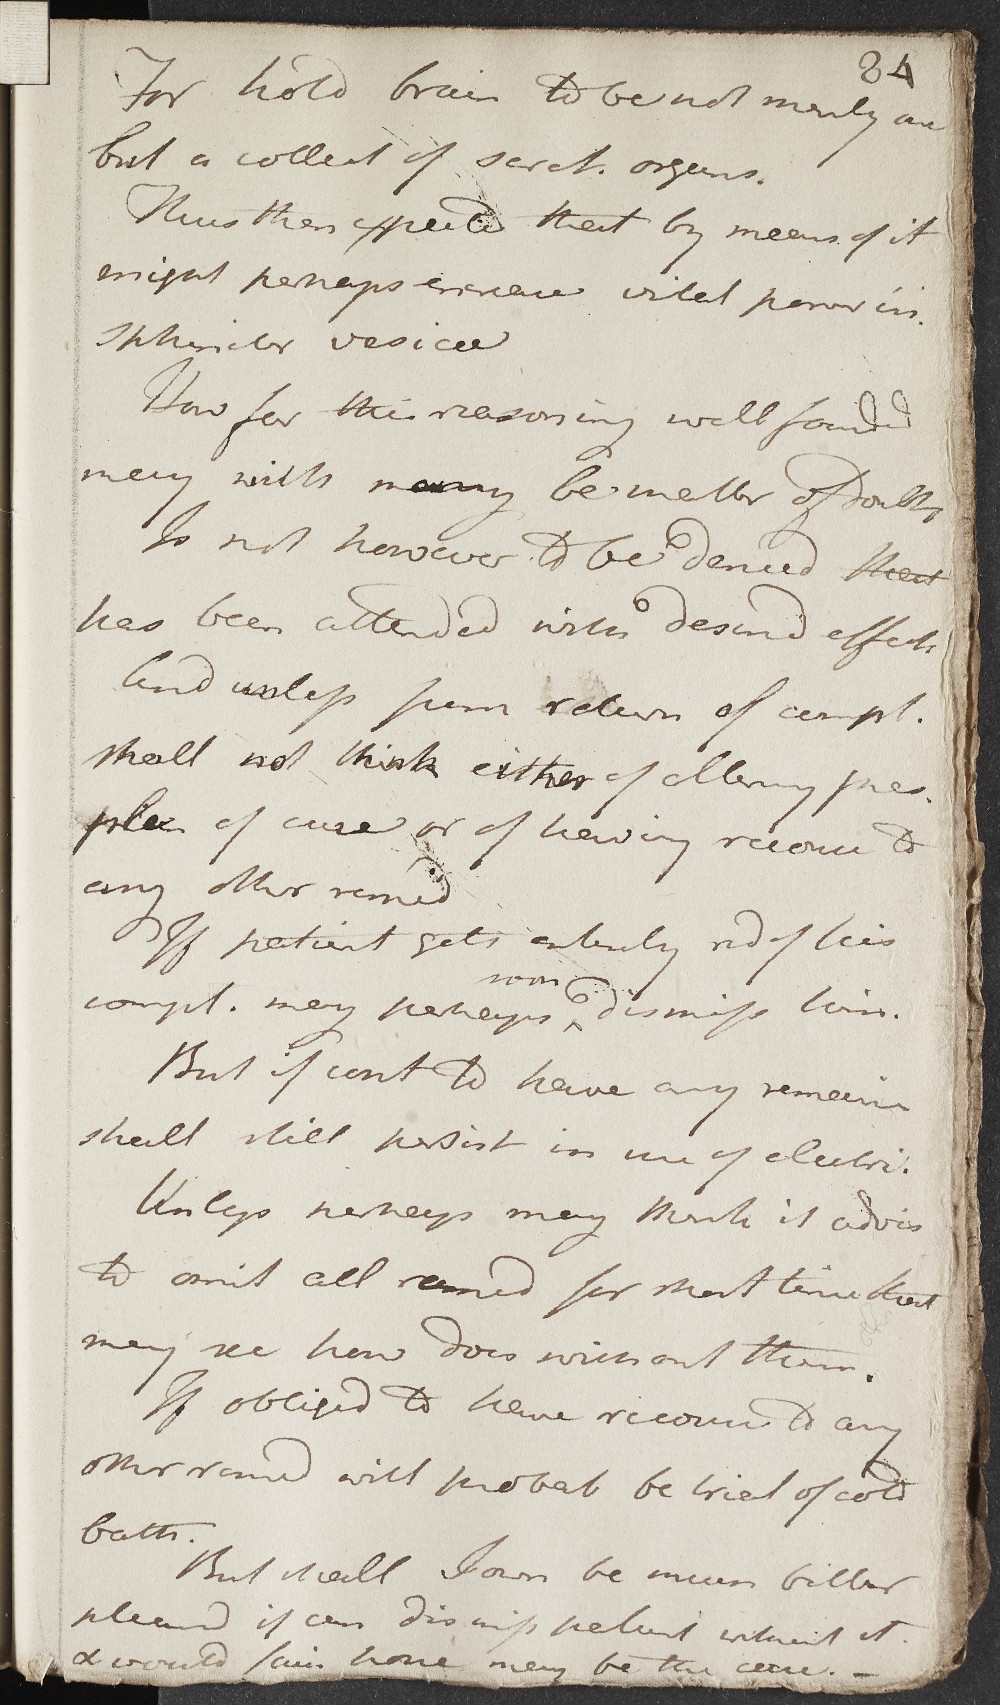 84
For hold brain to be not merely an
but a collect of secret. organs.
Thus then expected that by means of it
might perhaps increase vital power in
sphincter vesicae
How far this reasoning well founded
may with many be matter of doubt,
Is not however to be denied that
has been attended with desired effects
And unless from return of compl.
shall not think either of altering pres.
plan of cure or of having recourse to
any other remed
If patient gets entirely rid of his
compl. may perhaps soon dismiss him.
But if cont to have any remains
shall still persist in use of electri.
Unless perhaps may think it advis
to omit all remed for short time that
may see how does without them.
If obliged to have recourse to any
other remed will probab be trial of cold
bath.
But shall I own be much better
pleased if can dismiss patient without it.
& would fain hope may be the case. —